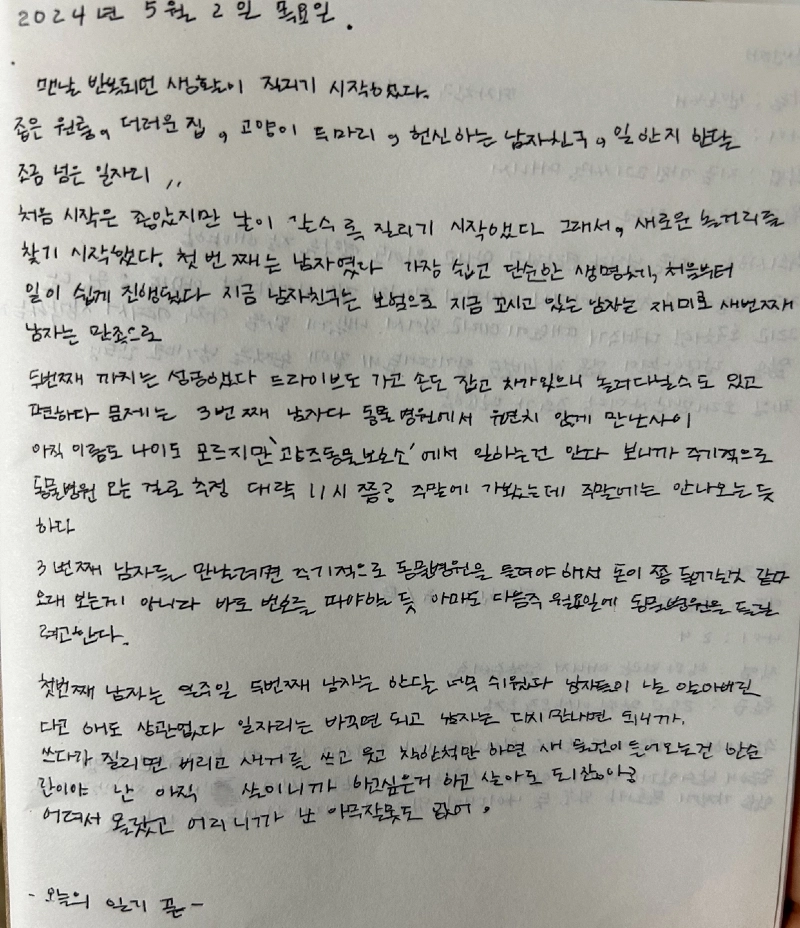 2024년 5월 2일 목요일.
맨날 반복되던 생활이 질리기 시작했다.
좁은 원룸, 더러운 집, 고양이 두마리, 헌신하는 남자친구, 일한지 한달
조금 넘은 일자리,,
처음 시작은 좋았지만 날이 갈수록 질리기 시작했다 그래서, 새로운 놀거리를
찾기 시작했다. 첫번째는 남자였다 가장 쉽고 단순한 생명체, 처음부터
일이 쉽게 진행됬다 지금 남자친구는 보험으로 지금 꼬시고 있는 남자는 재미로 새번째
남자는 만족으로
두번째 까지는 성공했다 드라이브도 가고 손도 잡고 차가있으니 놀러다닐수도 있고
편하다 문제는 3번째 남자다 동물병원에서 우연치 않게 만난사이
아직 이름도 나이도 모르지만 '광주동물보호소'에서 일하는건 안다 보니까 주기적으로
동물병원 오는 걸로 추정 대략 11시 쯤? 주말에 가봤는데 주말에는 안나오는듯
하다
3번째 남자를 만날려면 주기적으로 동물병원을 들려야 해서 돈이 쫌 들어갈것 같다
오래 보는게 아니라 바로 번호를 따야할 듯 아마도 다음주 월요일에 동물병원을 들릴
려고한다.
첫번째 남자는 일주일 두번째 남자는 한달 너무 쉬웠다 남자들이 날 알아버린
다고 해도 상관없다 일자리는 바꾸면 되고 남자는 다시 만나면 되니까.
쓰다가 질리면 버리고 새거를 쓰고 웃고 착한척만 하면 새 물건이 들어오는건 한순
간이야 난 아직 살이니까 하고싶은거 하고 살아도 되잖아?
어려서 몰랐고 어리니까 난 아무잘못도 없어.
- 오늘의 일기 끝 -